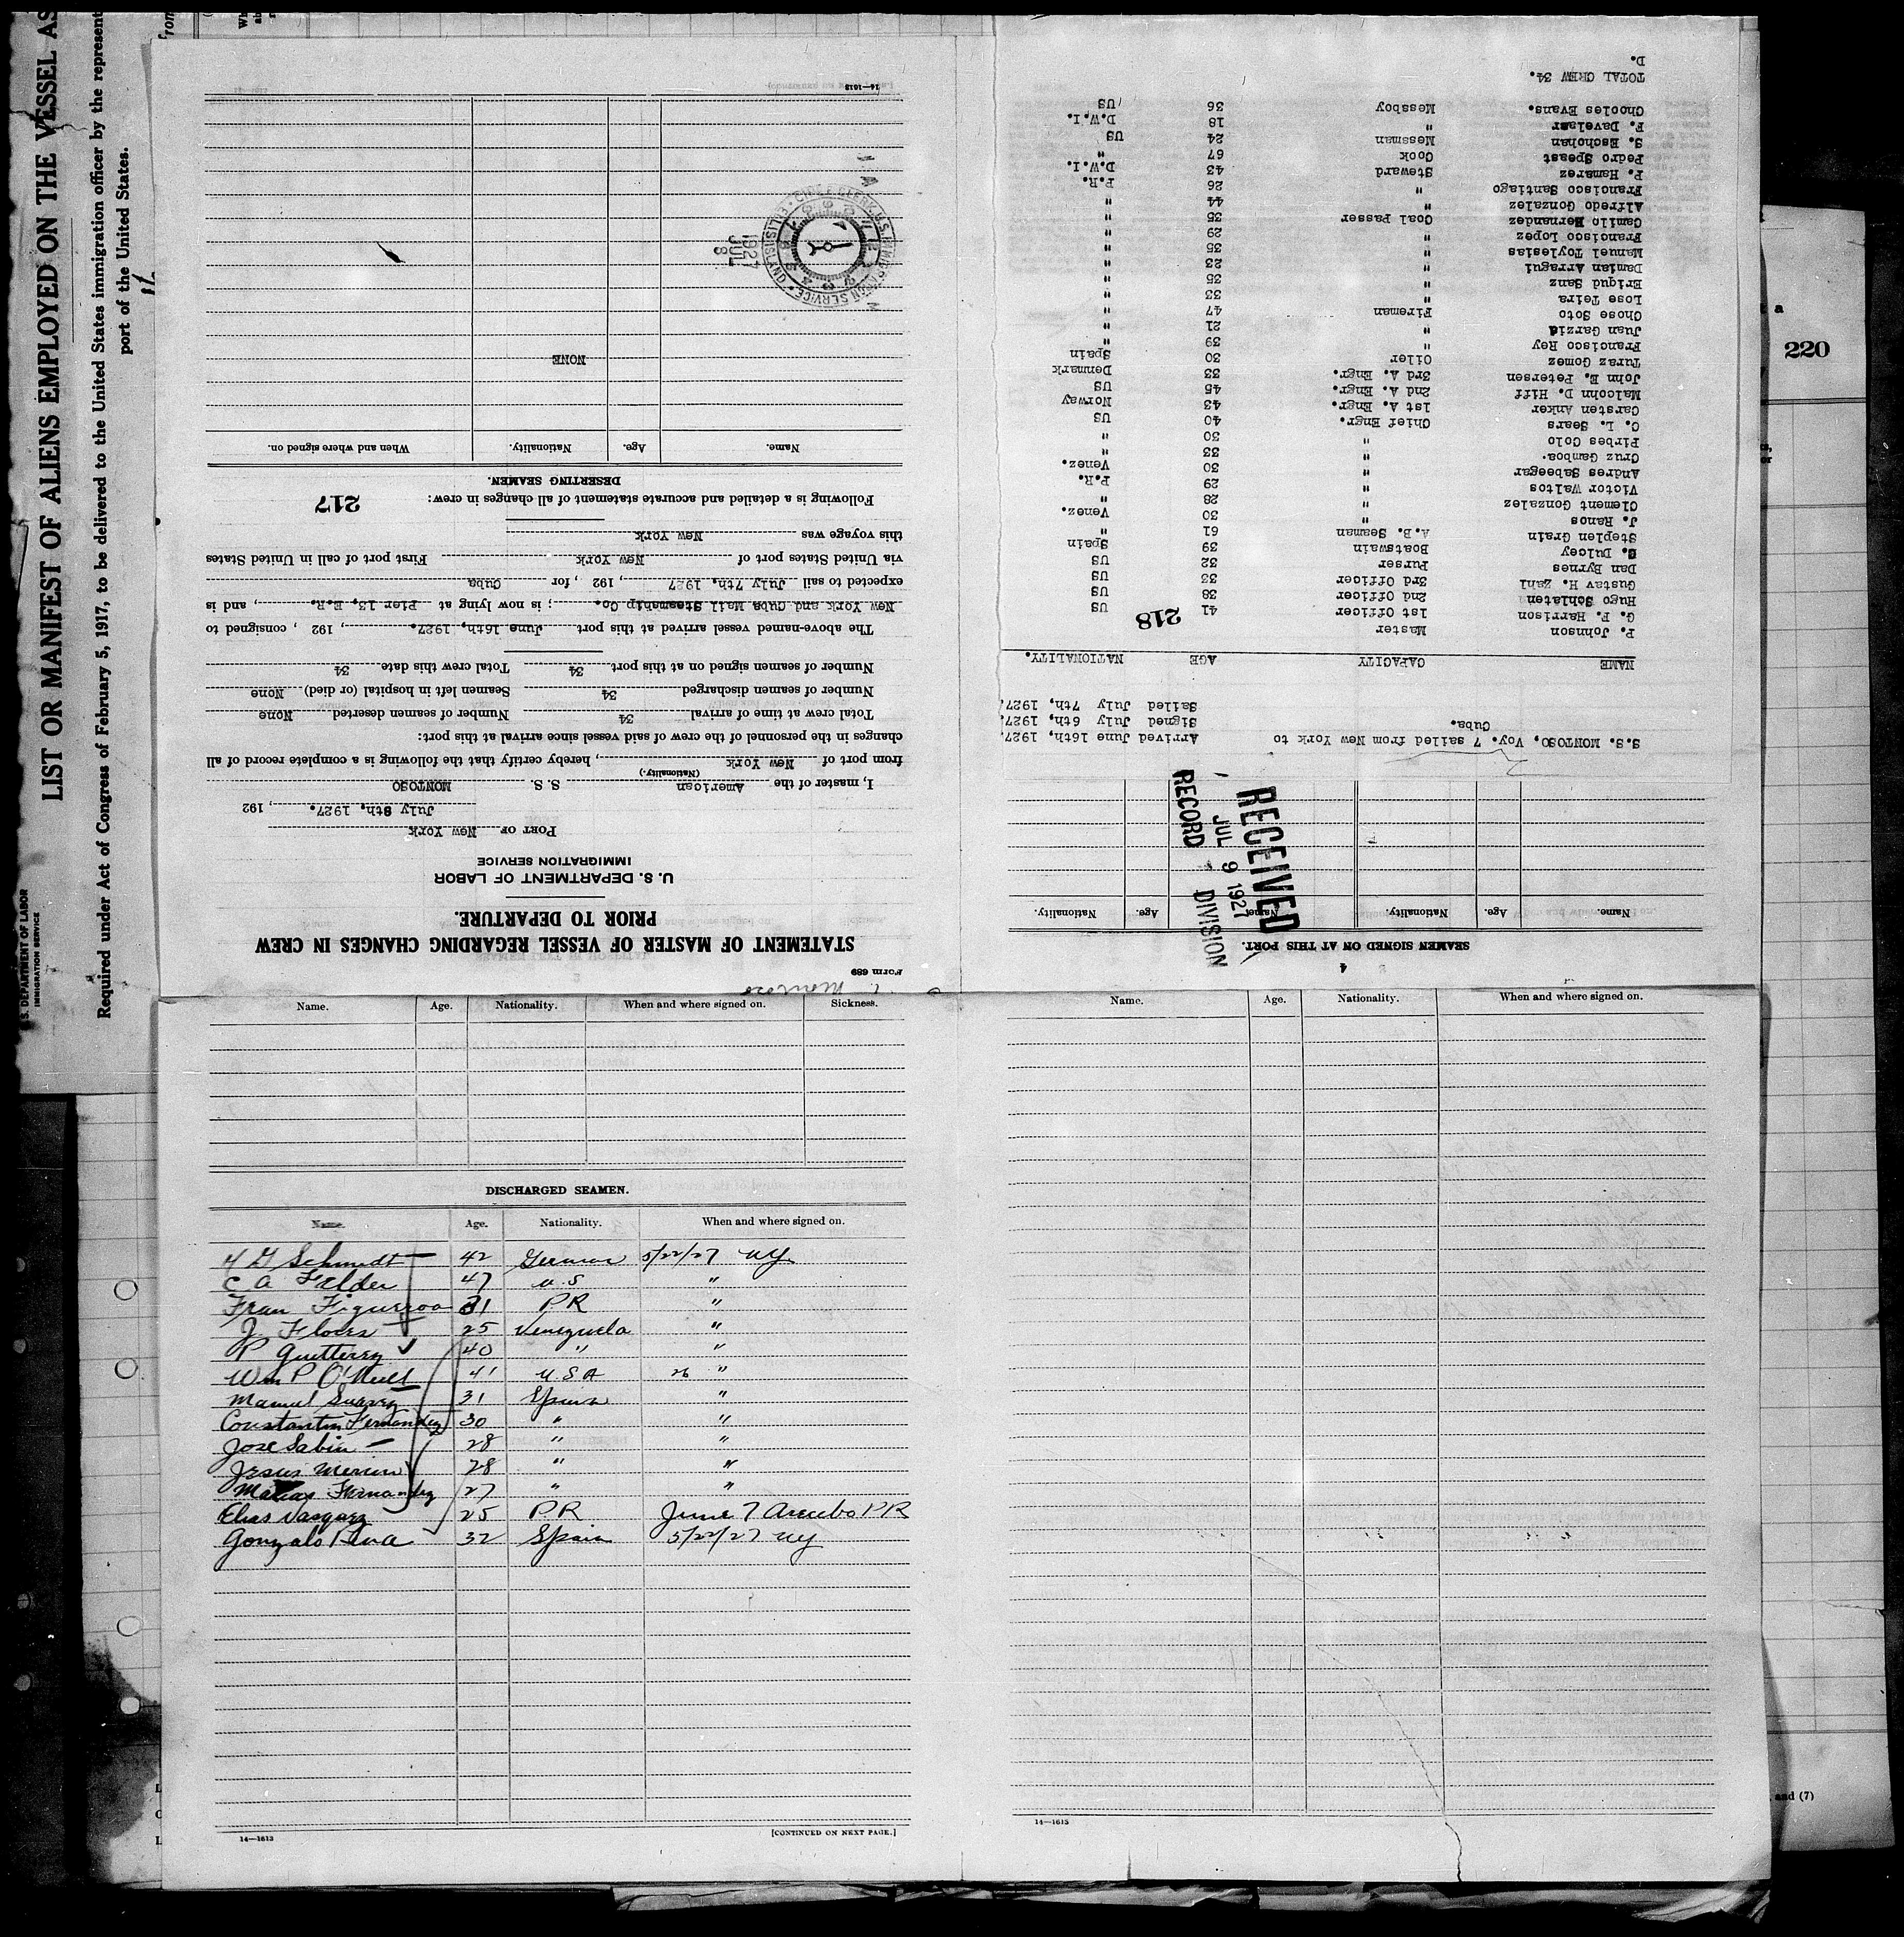 U. S. DEPARTMENT OF LABOR
IMMIGRATION SERVICE
LIST OR MANIFEST OF ALIENS EMPLOYED ON THE VESSEL AS
Required under Act of Congress of February 5, 1917, to be delivered to the United States immigration officer by the represent
port of the United States.
220
and (7)
Form 689
STATEMENT OF MASTER OF VESSEL REGARDING CHANGES IN CREW
PRIOR TO DEPARTURE.
U. S. DEPARTMENT OF LABOR
IMMIGRATION SERVICE
PORT OF New York
July 8th, 1927. , 192
I, master of the American S. S. MONTOSO
(Nationality.)
from port of New York , hereby certify that the following is a complete record of all
changes in the personnel of the crew of said vessel since arrival at this port:
Total crew at time of arrival 34 Number of seamen deserted None
Number of seamen discharged 34 Seamen left in hospital (or died) None
Number of seamen signed on at this port 34 Total crew this date 34
The above-named vessel arrived at this port June 16th, 1927. , 192 , consigned to
New York and Cuba Mail Steamship Co. ; is now lying at Pier 13, E.R. , and is
expected to sail July 7th, 1927 , 192 , for Cuba
via United States port of New York First port of call in United States
this voyage was New York
Following is a detailed and accurate statement of all changes in crew: 217
DESERTING SEAMEN.
Name. Age. Nationality. When and where signed on.
NONE
1927 JUL 8
14—1613
4
SEAMEN SIGNED ON AT THIS PORT.
Name. Age. Nationality. Name. Age. Nationality.
RECEIVED
JUL 9 1927
RECORD DIVISION
S.S. MONTOSO, Voy. 7 sailed from New York to Cuba.
Arrived June 16th, 1927.
Signed July 6th, 1927.
Sailed July 7th, 1927.
NAME CAPACITY AGE NATIONALITY.
P. Johnson Master
G. F. Harrison 1st Officer 41 US
218
Hugo Schlaten 2nd Officer 38 US
Gustav H. Zahl 3rd Officer 33 US
Dan Byrnes Purser 32 US
Dulcey Boatswain 39 Spain
Steplen Grain A.B. Seaman 61 "
J. Ranos " 30 Venez.
Clement Gonzalez " 28 "
Victor Waltos " 29 P.R.
Andres Sabeegar " 30 Venez.
Cruz Gamboa. " 33 "
Pirbies Colo " 30 "
C. L. Sears Chief Engr. 40 US
Carsten Anker 1st A. Engr. 43 Norway
Malcohn D. Hiff 2nd A. Engr. 45 US
John E. Petersen 3rd A. Engr. 33 Denmark
Turaz Gomez Oiler 30 Spain
Francisco Rey " 39 "
Juan Garzia " 21 "
Chose Soto Fireman 47 "
Lose Teira " 33 "
Eriqud Sanz " 35 "
Damian Arragui " 23 "
Manuel Toylesias " 35 "
Francisco Lopez " 29 "
Camilo Hernandez Coal Passer 35 "
Alfredo Gonzalez " 44 "
Francisco Santiago " 26 P.R.
P. Hamarez Steward 43 D.W.I.
Pedro Speast Cook 67 "
S. Eschohan Messman 24 US
F. Davelaar " 18 D.W.I.
Chooles Evans. Messboy 36 US
TOTAL CREW 34.
D.
Name. Age. Nationality. When and where signed on. Sickness.
DISCHARGED SEAMEN.
Name. Age. Nationality. When and where signed on.
H G Schmidt 42 German 5/22/27 NY
C A Felder 47 U.S "
Fran Figuerroa 31 PR "
J Flores 25 Venezuela "
P Guetterez 40 " "
Wm P O'Neill 41 U.S.A 26 "
Manuel Suarez 31 Spain "
Constantin Fernandez 30 " "
Jose Sabin 28 " "
Jesus Merion 28 " "
Matias Fernandez 27 " "
Elias Vasquez 25 P.R June 7 Arecibo PR
Gonzalo Pena 32 Spain 5/22/27 NY
14—1613 [CONTINUED ON NEXT PAGE.]
Name. Age. Nationality. When and where signed on.
14—1613